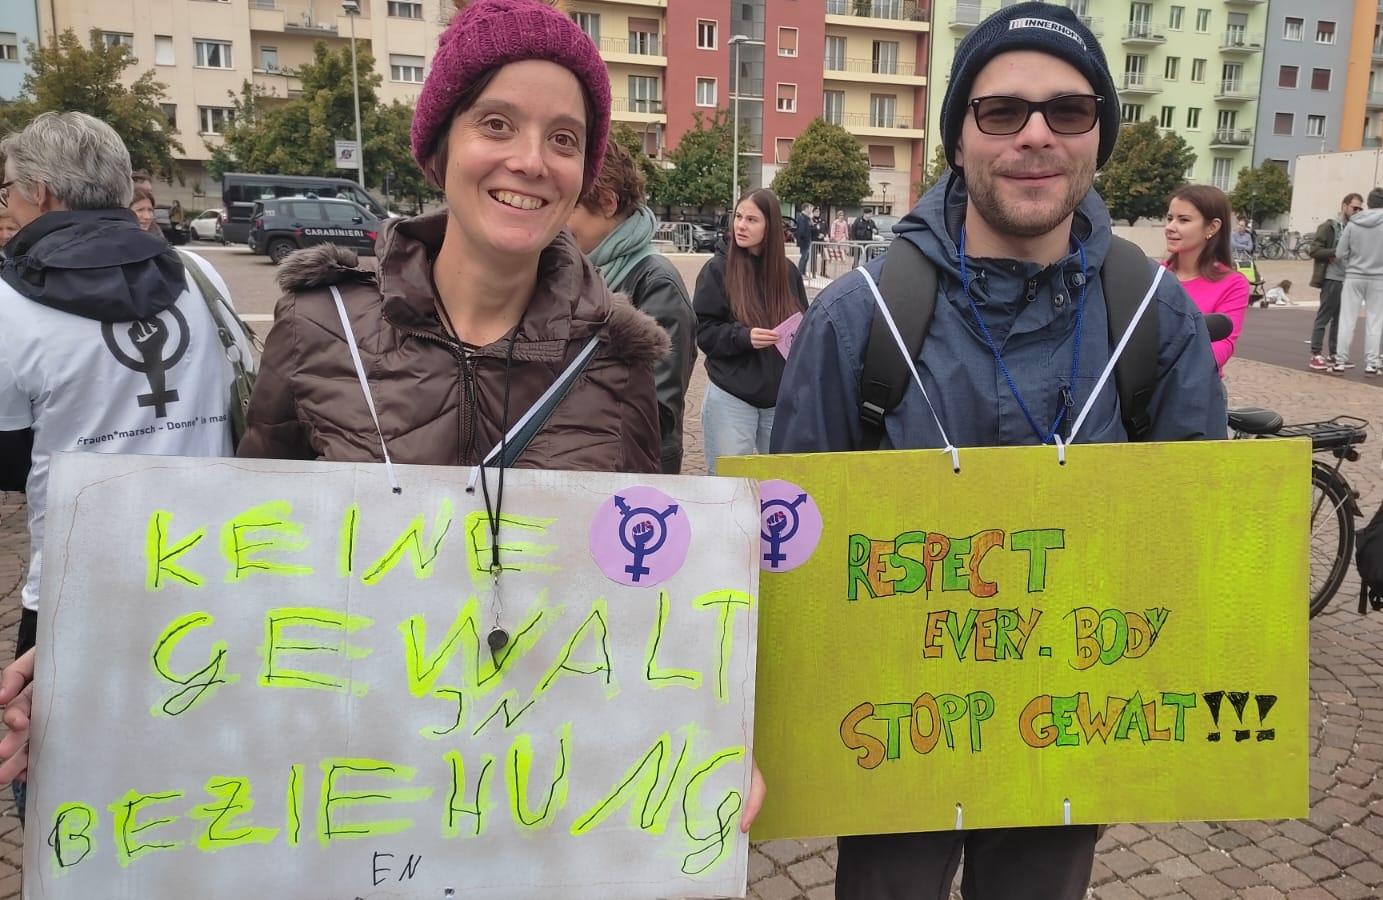 INNERHOFER
CARABINIERI
Frauen*marsch - Donne* in mar
KEINE
GEWALT
IN
BEZIEHUNG
EN
RESPECT
EVERY. BODY
STOPP GEWALT!!!